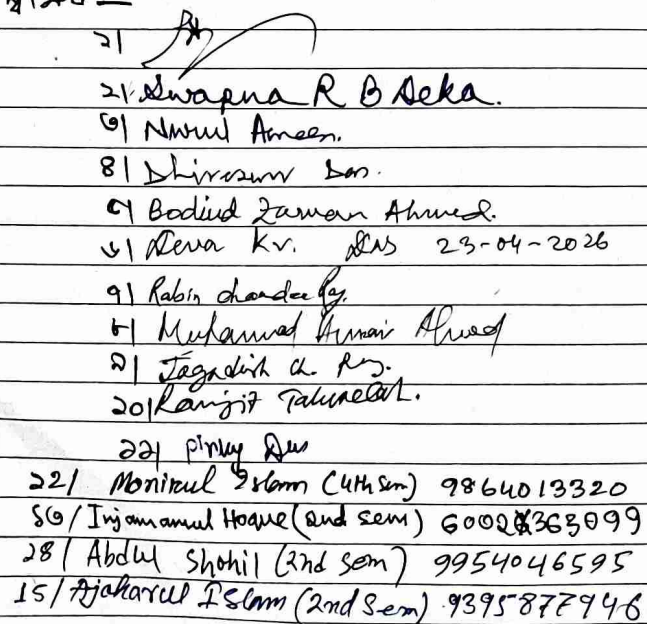 ১।
২। Swapna R B Deka.
৩। Nurul Ameen.
৪। Das.
৫। Bodiud Zaman Ahmed.
৬। Deva Kr. Das 23-04-2026
৭। Rabin chandra Ray.
৮। Muhammad Ahmed
৯। Jagadish ch. Ray.
১০। Ranjit Talukdar.
১১। Pinky Das
১২। Monirul Islam (4th sem) 9864013320
১৩। Injamamul Hoque (2nd sem) 363099
১৪। Abdul Shohil (2nd sem) 9954046595
১৫। Ajaharul Islam (2nd Sem)